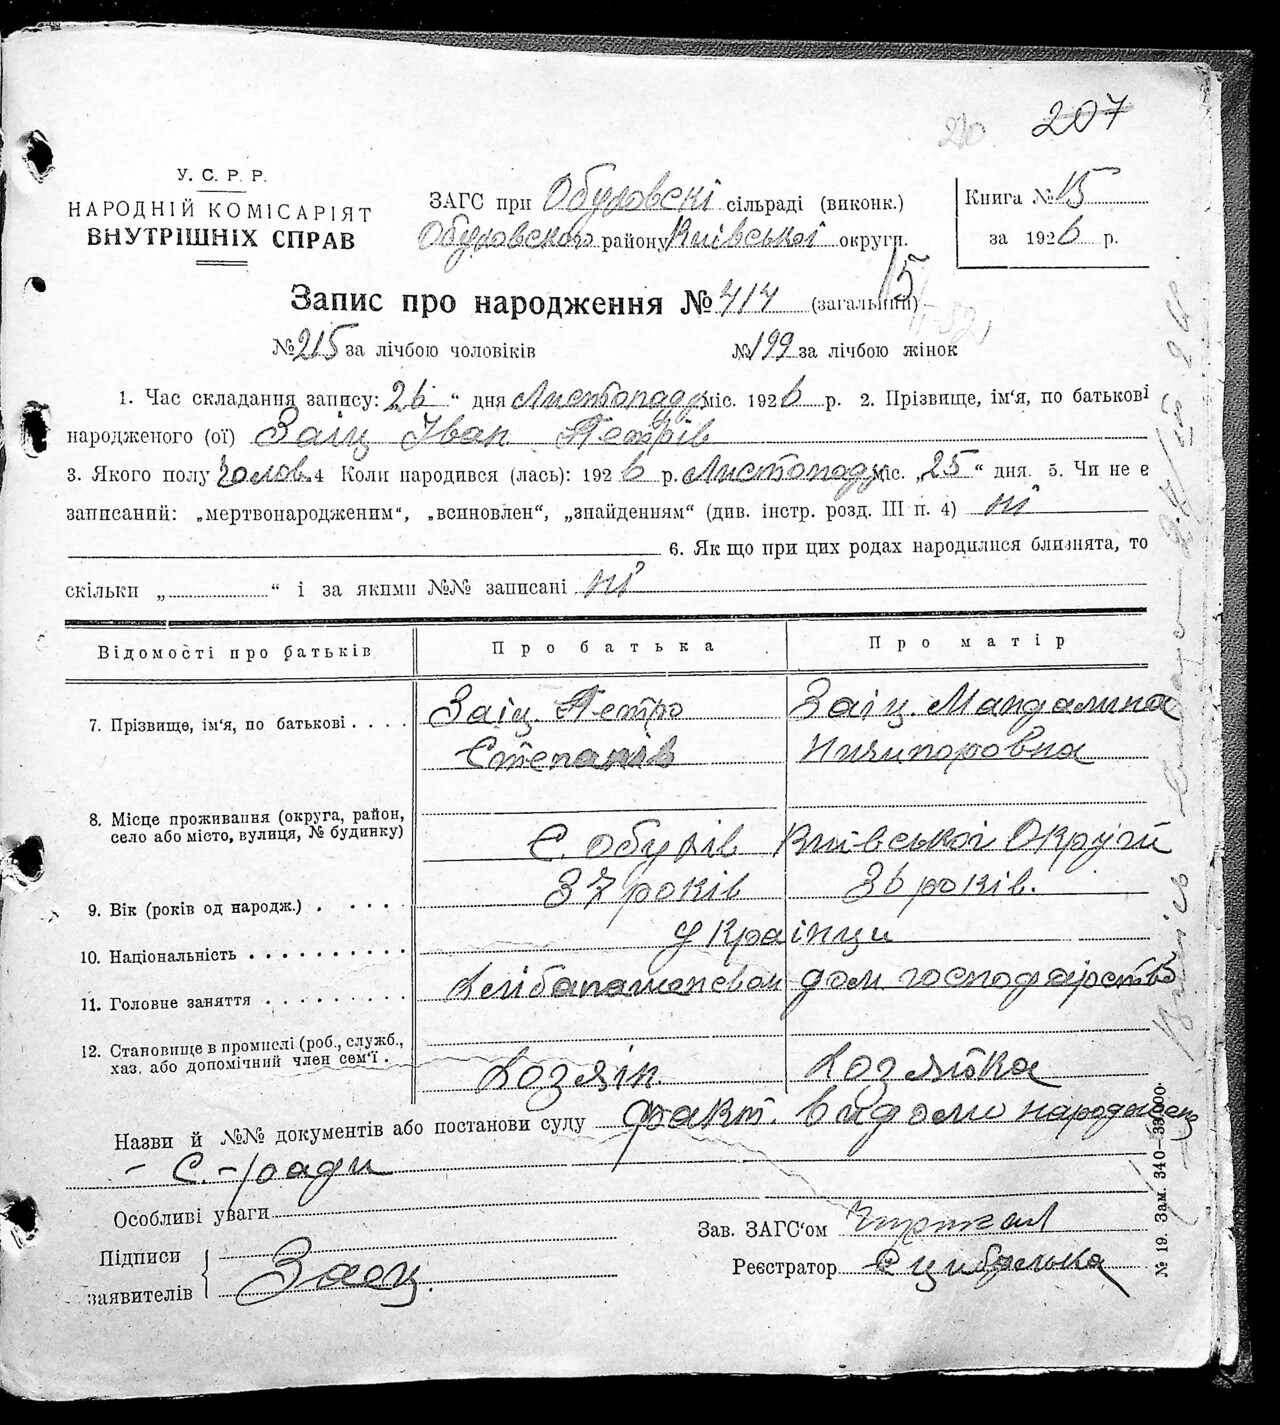 210 207
У. С. Р. Р.
НАРОДНІЙ КОМІСАРІЯТ
ВНУТРІШНІХ СПРАВ
ЗАГС при Обуховскі сільраді (виконк.)
Обуховского району Київської округи.
Книга № 15
за 1926 р.
15
Запис про народження № 414 (загальний)
№ 215 за лічбою чоловіків № 199 за лічбою жінок
1. Час складання запису: 26 " дня Листопаду міс. 1926 р. 2. Прізвище, ім'я, по батькові
народженого (ої) Заіц Іван Петрів
3. Якого полу Чолов. 4 Коли народився (лась): 1926 р. Листопаду міс. „25" дня. 5. Чи не є
записаний: „мертвонародженим", „всиновлен", „знайденням" (див. інстр. розд. III п. 4) ні
6. Як що при цих родах народилися близнята, то
скільки „ " і за якими №№ записані ні
Відомості про батьків Про батька Про матір
7. Прізвище, ім'я, по батькові . . . . Заіц Петро Заіц Мандалина
Степанів Ничипоровна
8. Місце проживання (округа, район,
село або місто, вулиця, № будинку) С. Обухів Київської Округи
9. Вік (років од народж.) . . . . . 37 років 36 років.
10. Національність . . . . . . . . . . Українци
11. Головне заняття . . . . . . . . . Хлібапашеном дом господарство
12. Становище в промислі (роб., служб.,
хаз. або допомічний член сем'ї . Хозяін Хозяйка
Назви й №№ документів або постанови суду факт. видоми народжен
- С.-ради
Особливі уваги
Зав. ЗАГС'ом
Підписи
заявителів
Заец.
Реєстратор
№ 19. Зам. 340—33000.